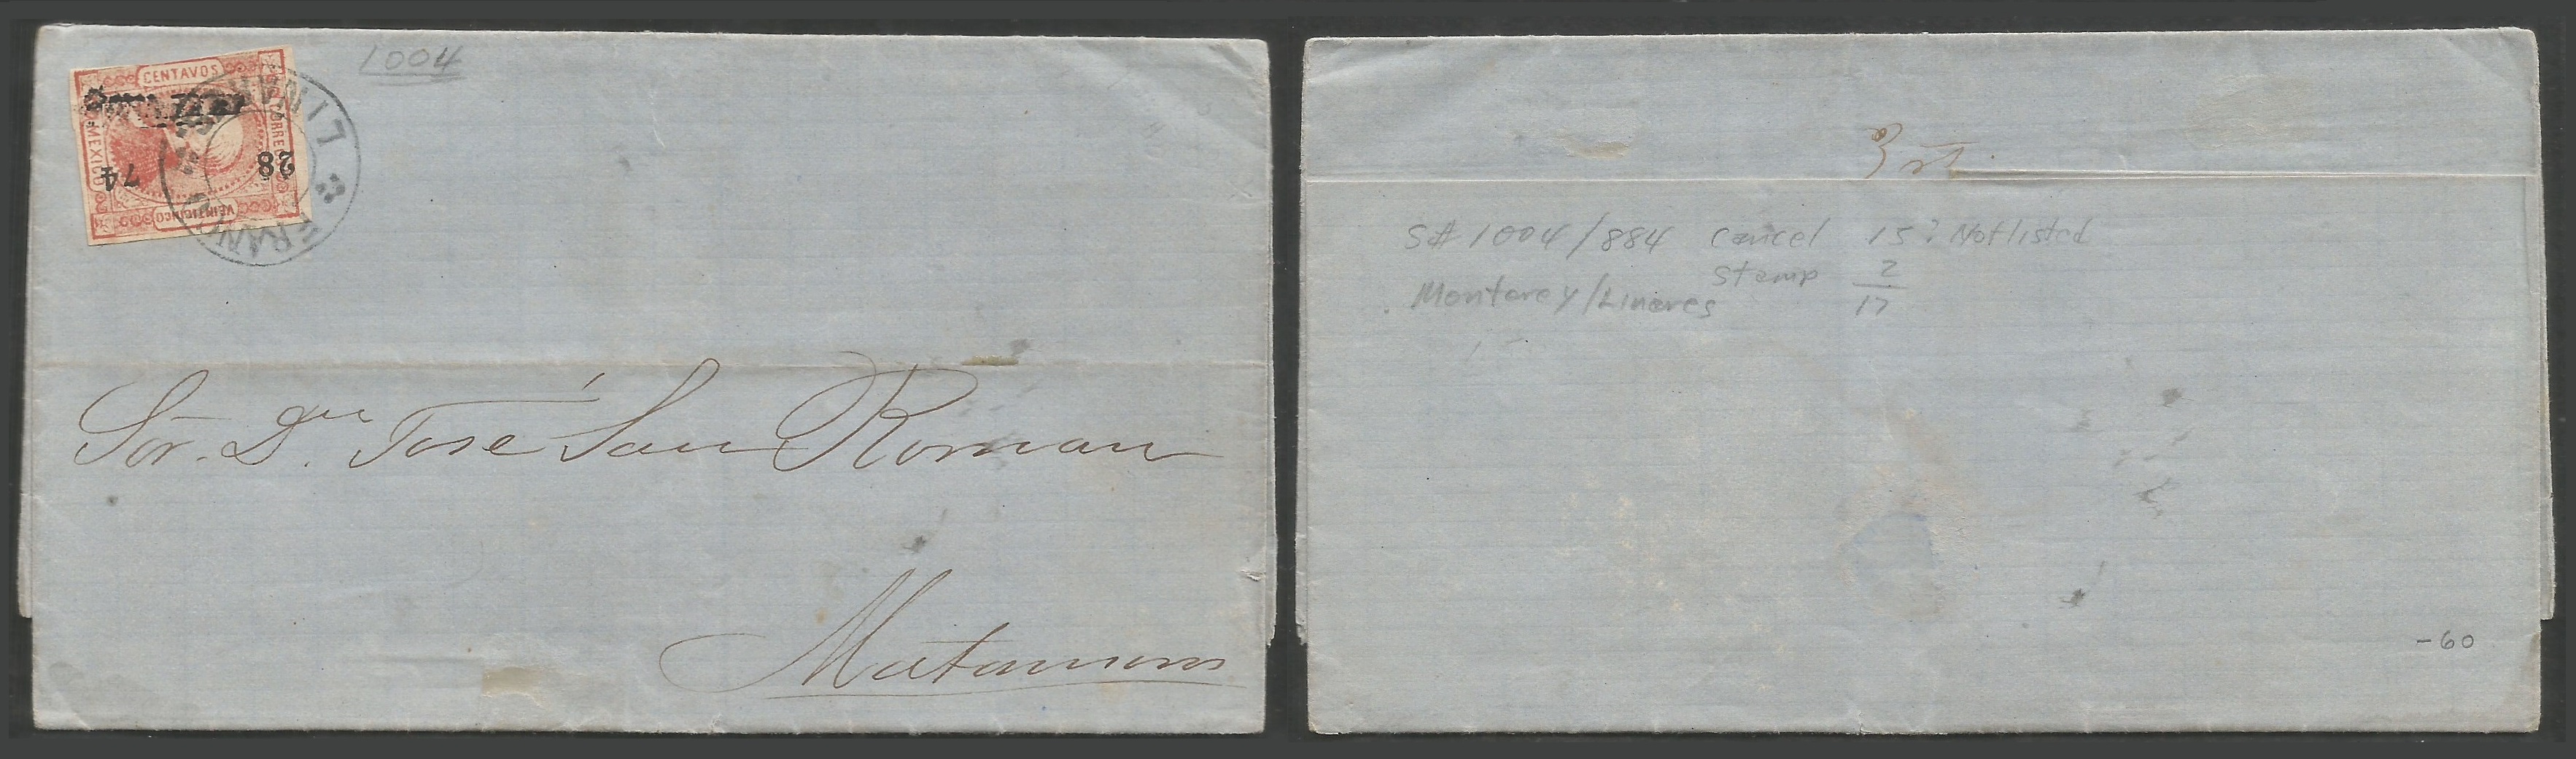 1004
CENTAVOS
CORREOS
MEXICO
VEINTICINCO
28
74
LINARES
FRANCO
Sõr. Dⁿ. José San Roman
Matamoros
S# 1004/884 Cancel 15? Not listed
Stamp 2
Monterey/Linares 17
-60